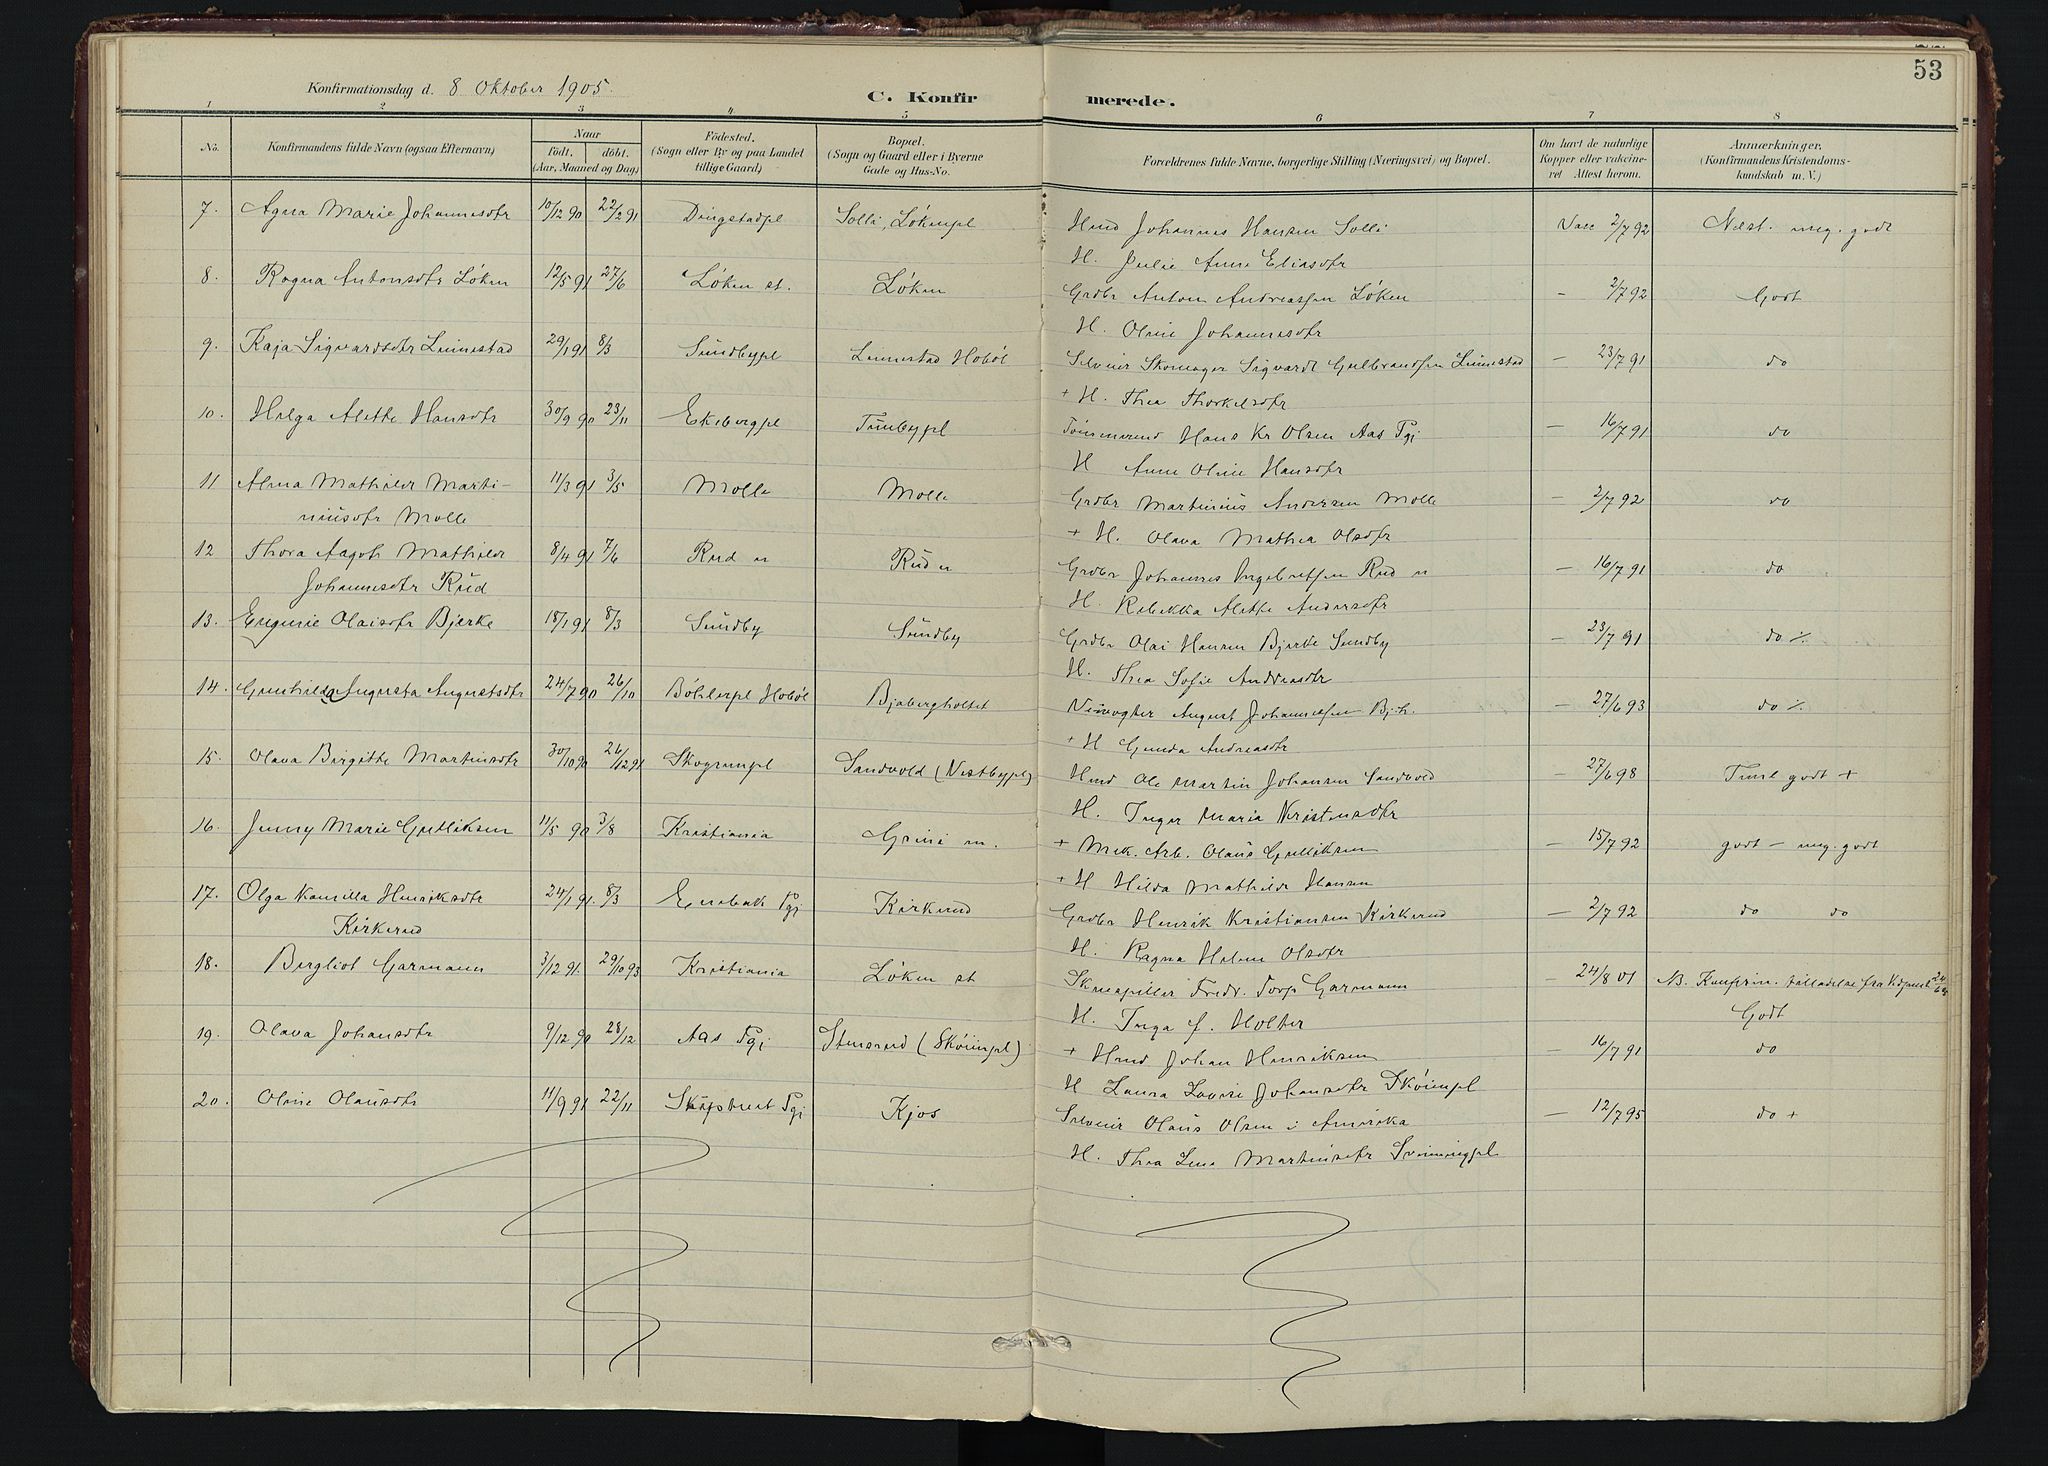 53
Konfirmationsdag d. 8 Oktober 1905.
C. Konfirmerede.
1 2 3 4 5 6 7 8
No.
Konfirmandens fulde Navn (ogsaa Efternavn)
Naar
födt. döbt.
(Aar, Maaned og Dag)
Födested.
(Sogn eller By og paa Landet
tillige Gaard)
Bopæl.
(Sogn og Gaard eller i Byerne
Gade og Hus-No.
Forældrenes fulde Navne, borgerlige Stilling (Næringsvei) og Bopæl.
Om havt de naturlige
Kopper eller vakcine-
ret Attest herom.
Anmærkninger.
(Konfirmandens Kristendoms-
kundskab m. V.)
7. Agna Marie Johannesdtr 10/12 90 22/2 91 Dingstadpl Solli, Lökenpl Hmd Johannes Hansen Solli Vacc 2/7 92 Næst. meg. godt
H. Julie Anne Eliasdtr
8. Ragna Antonsdtr Löken 12/5 91 27/6 Löken st. Löken Grdbr Anton Andreassen Löken - 2/7 92 Godt
H. Oline Johannesdtr
9. Kaja Sigvardsdtr Linnestad 29/1 91 8/3 Sundbypl Linnestad Hoböl Selveier Skomager Sigvardt Gulbrandsen Linnestad - 23/7 91 do
+ H. Thea Thorkelsdtr
10. Helga Alette Hansdtr 30/9 90 23/11 Ekebergpl Tunbypl Tömmermd Hans Kr Olsen Aas Pgj - 16/7 91 do
H Anne Oline Hansdtr
11 Alma Mathilde Marti- 11/3 91 3/5 Molle Molle Grdbr Martinius Andersen Molle - 2/7 92 do
niusdtr Molle
+ H. Olava Mathea Olsdtr
12 Thora Aagot Mathilde 8/4 91 7/6 Rud n Rud n Grdbr Johannes Ingebretsen Rud n - 16/7 91 do
Johannesdtr Rud
H. Rebekka Alette Andersdtr
13. Eugenie Olaisdtr Bjerke 18/1 91 8/3 Sundby Sundby Grdbr Olai Hansen Bjerke Sundby - 23/7 91 do ·/.
H. Thea Sofie Andreasdtr
14. Gunhilda Augusta Augustsdtr 24/7 90 26/10 Böhlerpl Hoböl Bjabergholtet August Johannessen Bjh. - 27/6 93 do ·/.
+ H Gunda Andreasdtr
15. Olava Birgitte Martinsdtr 30/10 90 26/12 91 Sandvold (Vestbypl) Hmd Ole Martin Johansen Sandvold - 27/6 98 Teml godt +
H. Inger Maria Kristensdtr
16. Jenny Marie Gulliksen 11/5 90 3/8 Kristiania Grini m. + Mek. Arb. Olaus Gulliksen - 15/7 92 godt - meg. godt
+ H Hilda Mathilde Hansen
17. Olga Kamilla Henriksdtr 24/1 91. 8/3 Enebak Pgj Kirkerud Grdbr Henrik Kristiansen Kirkerud - 2/7 92 do do
Kirkerud
H. Ragna Helene Olsdtr
18. Bergliot Garmann 3/12 91. 29/10 93 Kristiania Löken st Skuespiller Fredr. Torp Garmann - 24/8 01 NB. Konfirm. tilladelse fra
Godt
H. Inga f. Holter
19. Olava Johansdtr 9/12 90 28/12 Aas Pgj Stensrud (Sköienpl) + Hmd Johan Henriksen - 16/7 91 do
H Laura Lovise Johansdtr Sköienpl
20. Oline Olausdtr 11/9 91 22/11 Skiptvet Pgj Kjos Selveier Olaus Olsen i Amerika - 12/7 95 do +
H. Thea Line Martinsdtr Svinningpl